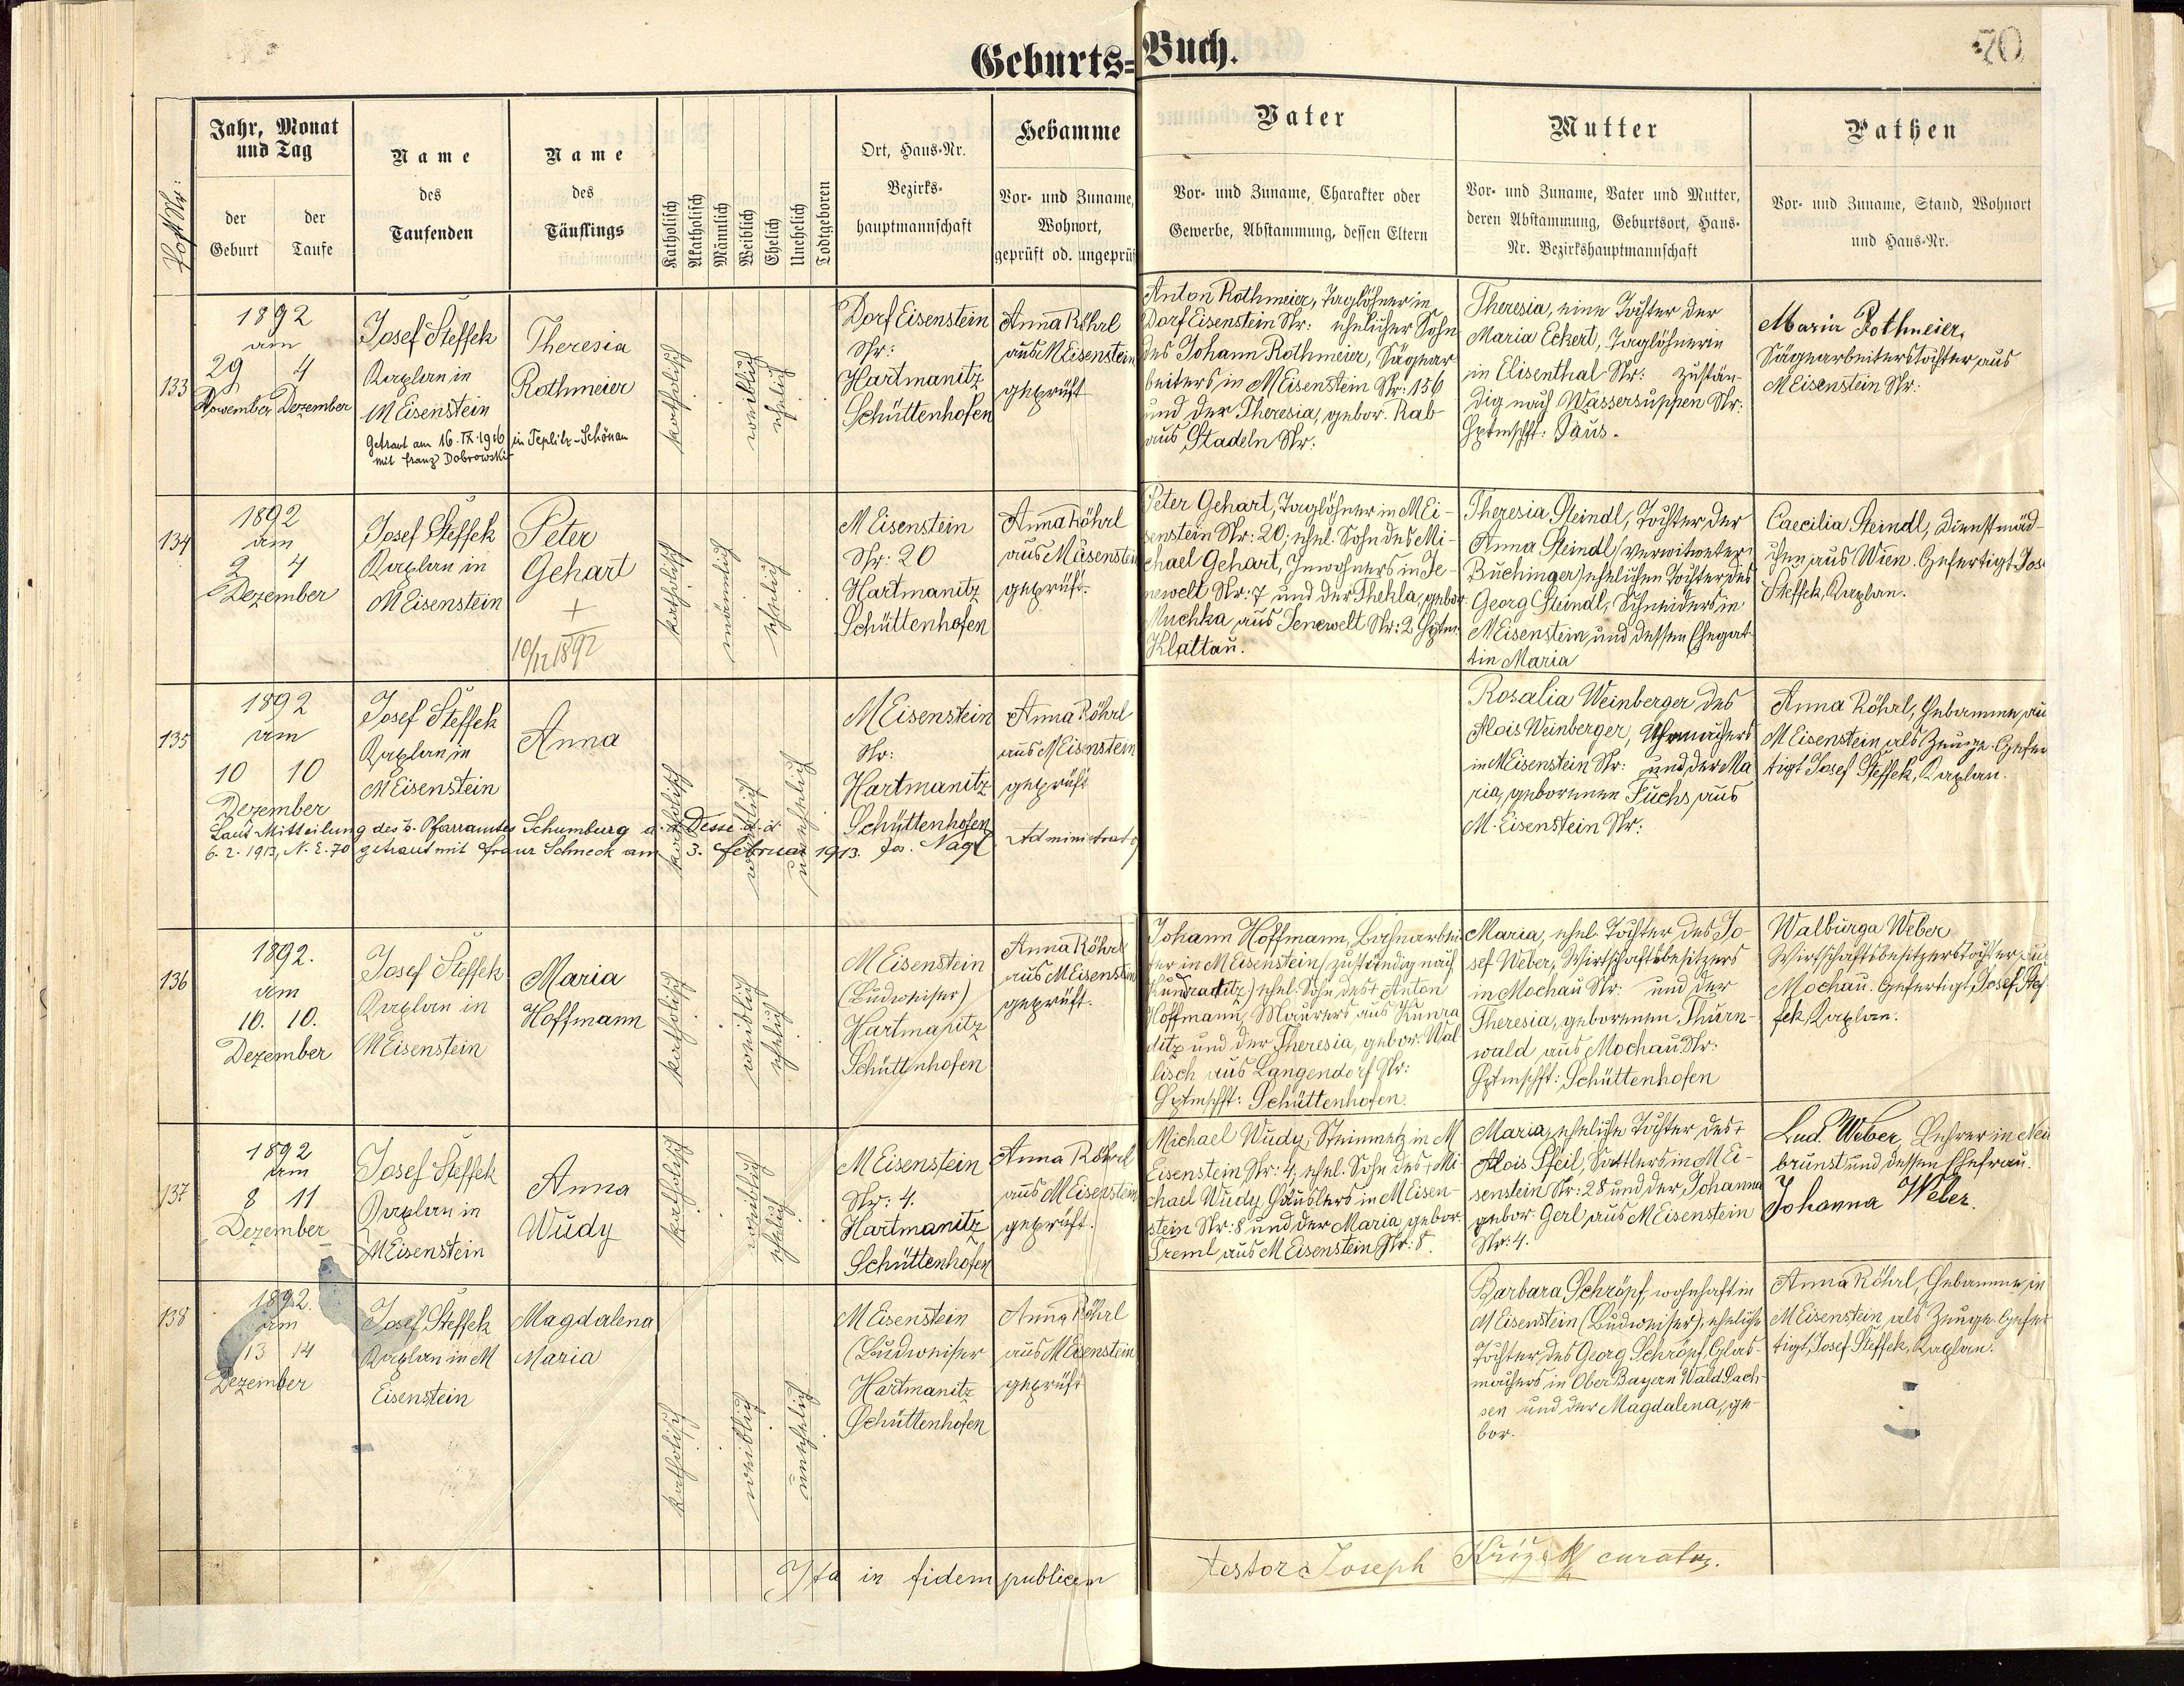 Geburts=Buch.
70
Post Nr:
Jahr, Monat
und Tag
der
Geburt
der
Taufe
Name
des
Taufenden
Name
des
Täuflings
Katholisch
Akatholisch
Männlich
Weiblich
Ehelich
Unehelich
Todtgeboren
Ort, Haus-Nr.
Bezirks-
hauptmannschaft
Hebamme
Vor- und Zuname,
Wohnort,
geprüft od. ungeprüf
Vater
Vor- und Zuname, Charakter oder
Gewerbe, Abstammung, dessen Eltern
Mutter
Vor- und Zuname, Vater und Mutter,
deren Abstammung, Geburtsort, Haus-
Nr. Bezirkshauptmannschaft
Pathen
Vor- und Zuname, Stand, Wohnort
und Haus-Nr.
133
1892
am
29 4
November Dezember
Josef Steffek
Kaplan in
M Eisenstein
Getraut am 16.IX.1916 in Teplitz-Schönau
mit Franz Dobrowski
Theresia
Rothmeier
katholisch
weiblich
ehelich
Dorf Eisenstein
Nr:
Hartmanitz
Schüttenhofen
Anna Röhrl
aus M Eisenstein
geprüft
Anton Rothmeier, Taglöhner in
Dorf Eisenstein Nr: ehelicher Sohn
des Johann Rothmeier, Sägear
beiters in M Eisenstein Nr: 156
und der Theresia, gebor. Rab
aus Stadeln Nr:
Theresia, eine Tochter der
Maria Eckert, Taglöhnerin
in Elisenthal Nr: zustän-
dig nach Wassersuppen Nr:
Hptmschft: Taus.
Maria Rothmeier,
Sägearbeiterstochter aus
M Eisenstein Nr:
134
1892
am
2 4
Dezember
Josef Steffek
Kaplan in
M Eisenstein
Peter
Gehart
+
10/12 1892
katholisch
männlich
ehelich
M Eisenstein
Nr: 20
Hartmanitz
Schüttenhofen
Anna Röhrl
aus M Eisenstein
geprüft.
Peter Gehart, Taglöhner in M Ei-
senstein Nr: 20; ehel. Sohn des Mi-
chael Gehart, Inwohners in Je-
newelt Nr: 7 und der Thekla, gebor
Muchka, aus Jenewelt Nr: 2 Hptm.
Klattau.
Theresia Steindl, Tochter der
Anna Steindl (verwitweter
Buchinger) ehelichen Tochter des
Georg Steindl, Schneiders in
M Eisenstein und dessen Ehegat
tin Maria
Caecilia Steindl, Dienstmäd-
chen aus Wien. Gefertigt Jos
Steffek, Kaplan.
135
1892
am
10 10
Dezember
Josef Steffek
Kaplan in
M Eisenstein
Anna
katholisch
weiblich
unehelich
M Eisenstein
Nr:
Hartmanitz
Schüttenhofen
Anna Röhrl
aus M Eisenstein
geprüft
Laut Mitteilung des Pfarramtes Schumburg a. d. Desse d. d.
6. 2. 1913, N. E. 70 getraut mit Franz Schneck am 3. Februar 1913. Jos. Nagl Administrator
Rosalia Weinberger des
Alois Weinberger, Uhrmachers
in M Eisenstein Nr: und der Ma
ria, geborenen Fuchs aus
M. Eisenstein Nr:
Anna Röhrl, Hebamme au
M Eisenstein als Zeuge. Gefer
tigt Josef Steffek, Kaplan.
136
1892.
am
10. 10.
Dezember
Josef Steffek
Kaplan in
M Eisenstein
Maria
Hoffmann
katholisch
weiblich
ehelich
M Eisenstein
(Budweiser)
Hartmanitz
Schüttenhofen
Anna Röhrl
aus M Eisenstein
geprüft.
Johann Hoffmann, Bahnarbei
ter in M Eisenstein (zuständig nach
Kundraditz) ehel. Sohn des + Anton
Hoffmann, Maurers aus Kunra
ditz und der Theresia, gebor. Wal
lisch aus Langendorf Nr:
Hptmschft: Schüttenhofen.
Maria, ehel. Tochter des Jo-
sef Weber, Wirtschaftsbesitzers
in Mochau Nr: und der
Theresia, geborenen Thurn-
wald aus Mochau Nr:
Hptmschft: Schüttenhofen
Walburga Weber
Wirtschaftsbesitzerstochter aus
Mochau. Gefertigt, Josef Stef
fek, Kaplan.
137
1892
am
8 11
Dezember
Josef Steffek
Kaplan in
M Eisenstein
Anna
Wudy
katholisch
weiblich
ehelich
M Eisenstein
Nr: 4.
Hartmanitz
Schüttenhofen
Anna Röhrl
aus M Eisenstein
geprüft.
Michael Wudy, Steinmetz in M
Eisenstein Nr: 4, ehel. Sohn des + Mi
chael Wudy, Häuslers in M Eisen-
stein Nr: 8 und der Maria gebor.
Treml aus M Eisenstein Nr: 8.
Maria, eheliche Tochter des +
Alois Pfeil, Sattlers in M Ei-
senstein Nr: 28 und der Johanna
gebor. Gerl aus M Eisenstein
Nr: 4.
Lud. Weber, Lehrer in Neu
brunst und dessen Ehefrau.
Johanna Weber.
138
1892.
am
13 14
Dezember
Josef Steffek
Kaplan in M
Eisenstein
Magdalena
Maria
katholisch
weiblich
unehelich
M Eisenstein
(Budweiser
Hartmanitz
Schüttenhofen
Anna Röhrl
aus M Eisenstein
geprüft
Barbara Schröpf, wohnhaft in
M Eisenstein (Budweiser), eheliche
Tochter des Georg Schröpf, Glas-
machers in Ober Bayern Wald Sach-
sen und der Magdalena, ge-
bor.
Anna Röhrl, Hebamme in
M Eisenstein, als Zeuge. Gefer
tigt, Josef Steffek, Kaplan.
Ita in fidem publicam
testor: Joseph Křižek curatus.